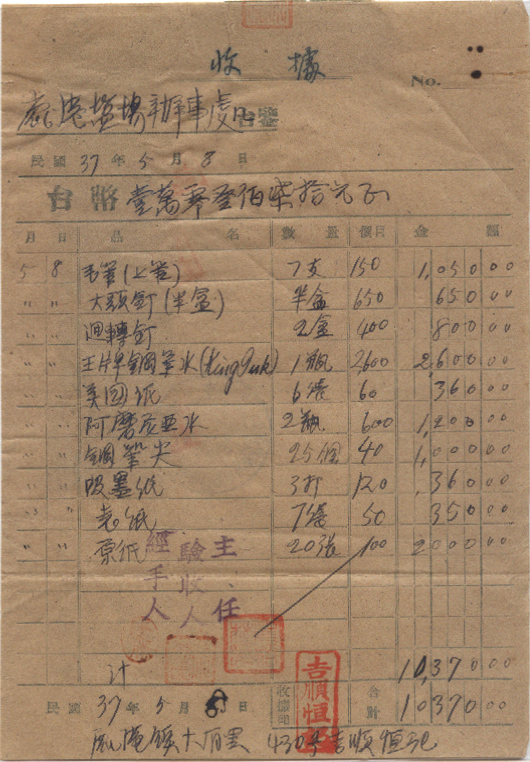 收據
No.
鹽場辦事處台鑒
民國 37 年 5 月 8 日
台幣 壹萬零叁佰柒拾元正
月 日 品 名 數 量 價目 金 額
5 8 毛筆(上等) 7支 150 1,050 00
〃 〃 大頭釘(半盒) 半盒 650 650 00
〃 〃 迴轉釘 2盒 400 800 00
〃 〃 鋼筆水(King Ink) 1瓶 2600 2,600 00
〃 〃 美國紙 6張 60 360 00
〃 〃 阿摩尼亞水 2瓶 600 1,200 00
〃 〃 鋼筆尖 25個 40 1,000 00
〃 〃 吸墨紙 3打 120 360 00
〃 〃 紙 7張 50 350 00
〃 〃 原紙 20張 100 2000 00
主任
驗收人
經手人
計 10,370 00
民國 37 年 5 月 8 日 合計 10370 00
吉順恒
吉順恒記